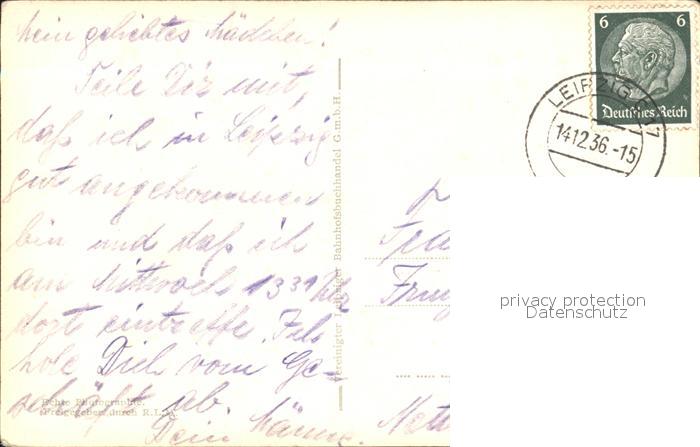 Mein geliebtes Mädchen!
Teile Dir mit,
daß ich in Leipzig
gut angekommen
bin und daß ich
am Mittwoch 13 31 Uhr
dort eintreffe. Ich
hole Dich vom Ge-
schäft ab.
Dein Männe.
Echte Photographie.
Freigegeben durch R.L.M.
Vereinigter Bahnhofsbuchhandel G.m.b.H.
6 6
Deutsches Reich
LEIPZIG
14.12.36.-15
privacy protection
Datenschutz